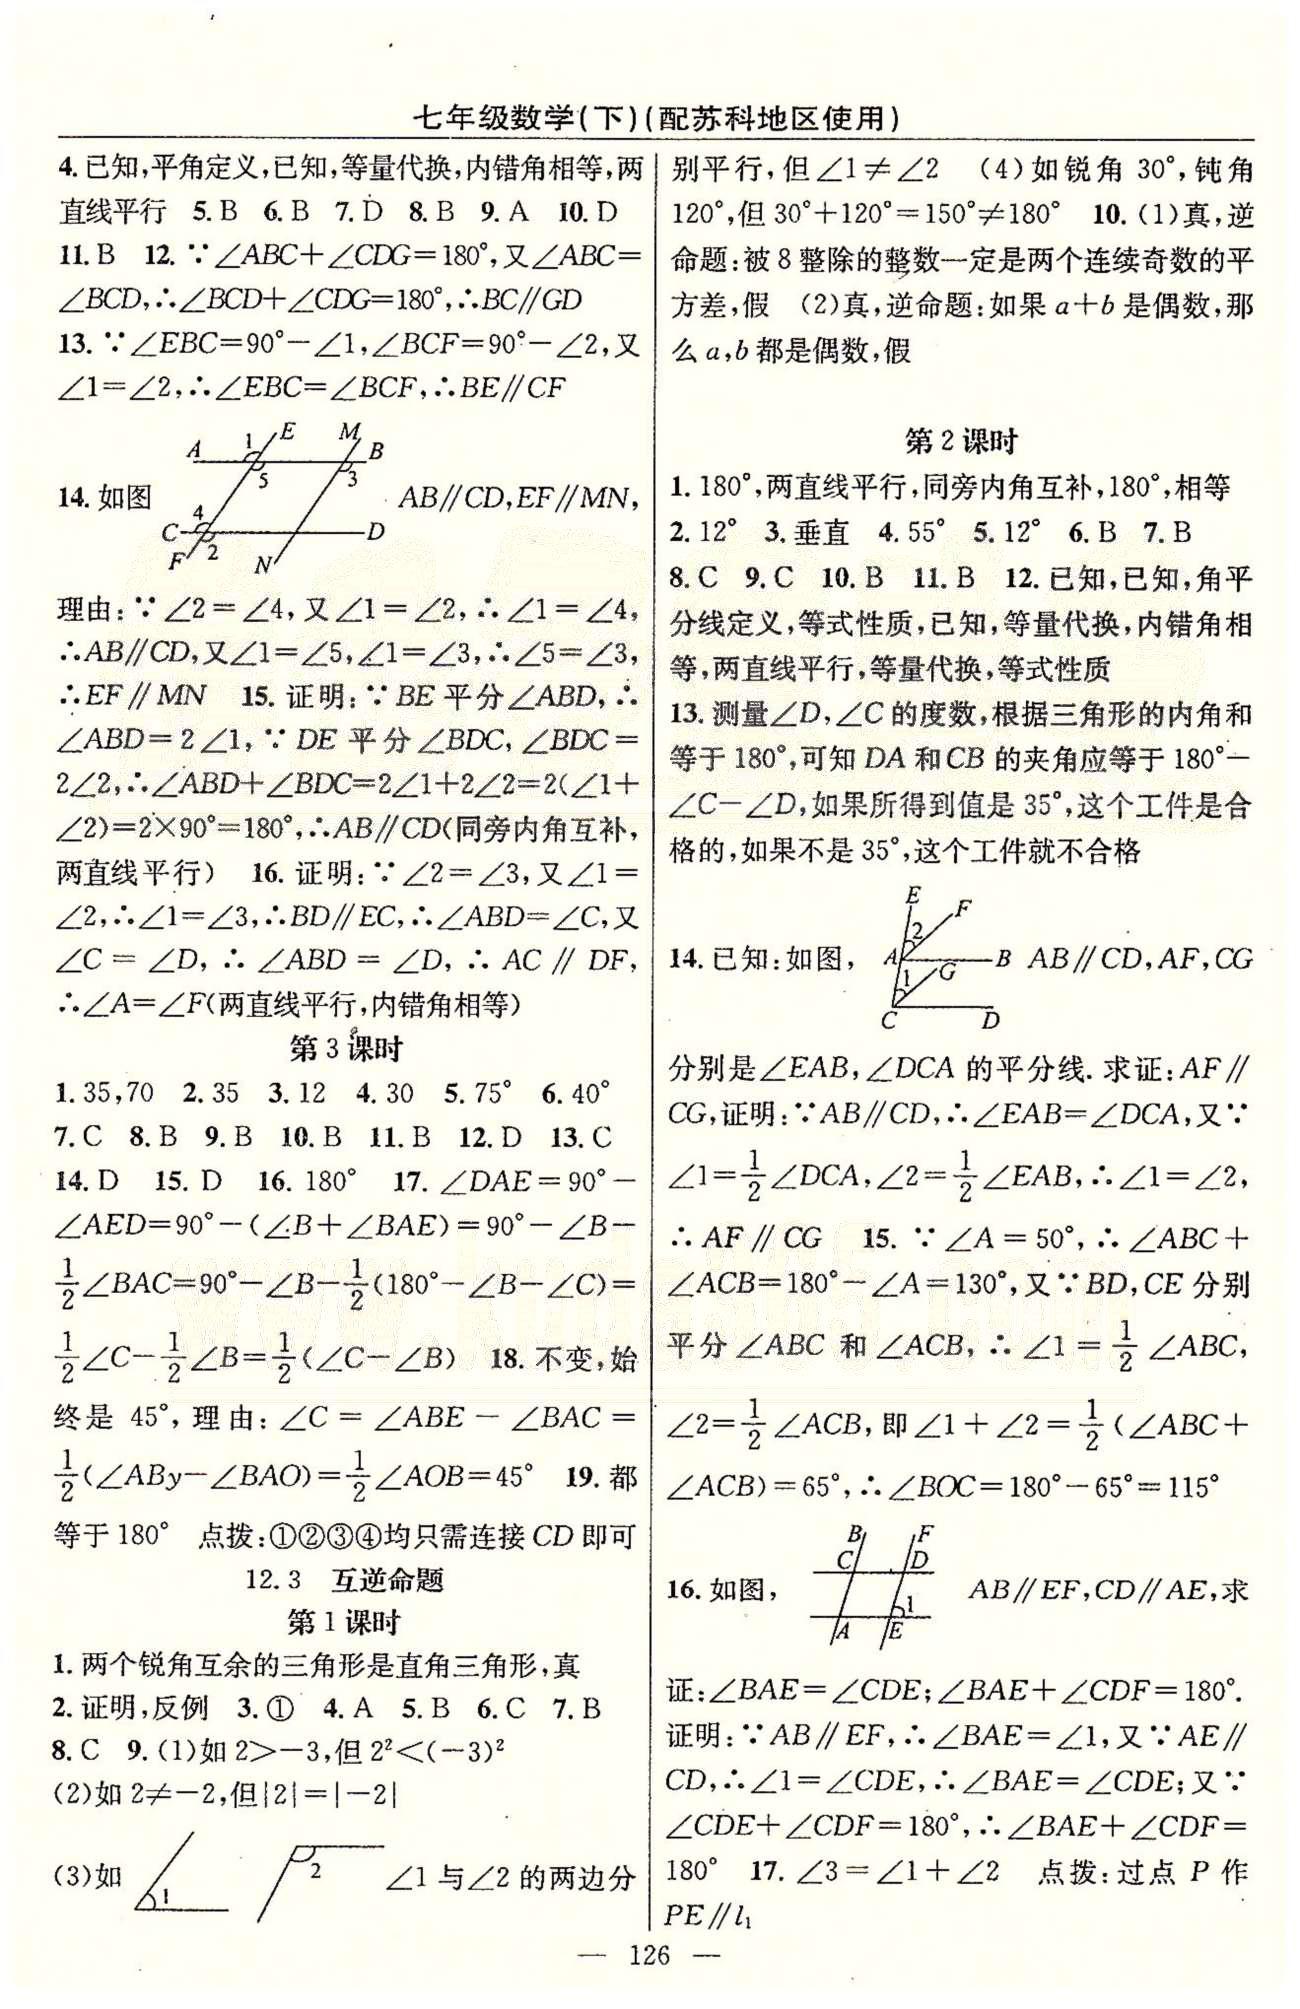 七年级数学(下)(配苏科地区使用)
4.已知,平角定义,已知,等量代换,内错角相等,两
直线平行 5.B 6.B 7.D 8.B 9.A 10.D
11.B 12.∵∠ABC+∠CDG=180°,又∠ABC=
∠BCD,∴∠BCD+∠CDG=180°,∴BC∥GD
13.∵∠EBC=90°-∠1,∠BCF=90°-∠2,又
∠1=∠2,∴∠EBC=∠BCF,∴BE∥CF
A 1 E M B
5 3
14.如图 AB∥CD,EF∥MN,
C 4 D
F 2 N
理由:∵∠2=∠4,又∠1=∠2,∴∠1=∠4,
∴AB∥CD,又∠1=∠5,∠1=∠3,∴∠5=∠3,
∴EF∥MN 15.证明:∵BE平分∠ABD,∴
∠ABD=2∠1,∵DE平分∠BDC,∠BDC=
2∠2,∴∠ABD+∠BDC=2∠1+2∠2=2(∠1+
∠2)=2×90°=180°,∴AB∥CD(同旁内角互补,
两直线平行) 16.证明:∵∠2=∠3,又∠1=
∠2,∴∠1=∠3,∴BD∥EC,∴∠ABD=∠C,又
∠C=∠D,∴∠ABD=∠D,∴AC∥DF,
∴∠A=∠F(两直线平行,内错角相等)
第3课时
1.35,70 2.35 3.12 4.30 5.75° 6.40°
7.C 8.B 9.B 10.B 11.B 12.D 13.C
14.D 15.D 16.180° 17.∠DAE=90°-
∠AED=90°-(∠B+∠BAE)=90°-∠B-
1/2∠BAC=90°-∠B-1/2(180°-∠B-∠C)=
1/2∠C-1/2∠B=1/2(∠C-∠B) 18.不变,始
终是45°,理由:∠C=∠ABE-∠BAC=
1/2(∠ABy-∠BAO)=1/2∠AOB=45° 19.都
等于180° 点拨:①②③④均只需连接CD即可
12.3 互逆命题
第1课时
1.两个锐角互余的三角形是直角三角形,真
2.证明,反例 3.① 4.A 5.B 6.C 7.B
8.C 9.(1)如2>-3,但2²<(-3)²
(2)如2≠-2,但|2|=|-2|
(3)如 1 2 ∠1与∠2的两边分
别平行,但∠1≠∠2 (4)如锐角30°,钝角
120°,但30°+120°=150°≠180° 10.(1)真,逆
命题:被8整除的整数一定是两个连续奇数的平
方差,假 (2)真,逆命题:如果a+b是偶数,那
么a,b都是偶数,假
第2课时
1.180°,两直线平行,同旁内角互补,180°,相等
2.12° 3.垂直 4.55° 5.12° 6.B 7.B
8.C 9.C 10.B 11.B 12.已知,已知,角平
分线定义,等式性质,已知,等量代换,内错角相
等,两直线平行,等量代换,等式性质
13.测量∠D,∠C的度数,根据三角形的内角和
等于180°,可知DA和CB的夹角应等于180°-
∠C-∠D,如果所得到值是35°,这个工件是合
格的,如果不是35°,这个工件就不合格
E F
2
14.已知:如图, A B AB∥CD,AF,CG
1 G
C D
分别是∠EAB,∠DCA的平分线.求证:AF∥
CG,证明:∵AB∥CD,∴∠EAB=∠DCA,又∵
∠1=1/2∠DCA,∠2=1/2∠EAB,∴∠1=∠2,
∴AF∥CG 15.∵∠A=50°,∴∠ABC+
∠ACB=180°-∠A=130°,又∵BD,CE分别
平分∠ABC和∠ACB,∴∠1=1/2∠ABC,
∠2=1/2∠ACB,即∠1+∠2=1/2(∠ABC+
∠ACB)=65°,∴∠BOC=180°-65°=115°
B F
C D
16.如图, 1 AB∥EF,CD∥AE,求
A E
证:∠BAE=∠CDE;∠BAE+∠CDF=180°.
证明:∵AB∥EF,∴∠BAE=∠1,又∵AE∥
CD,∴∠1=∠CDE,∴∠BAE=∠CDE;又∵
∠CDE+∠CDF=180°,∴∠BAE+∠CDF=
180° 17.∠3=∠1+∠2 点拨:过点P作
PE∥l₁
— 126 —